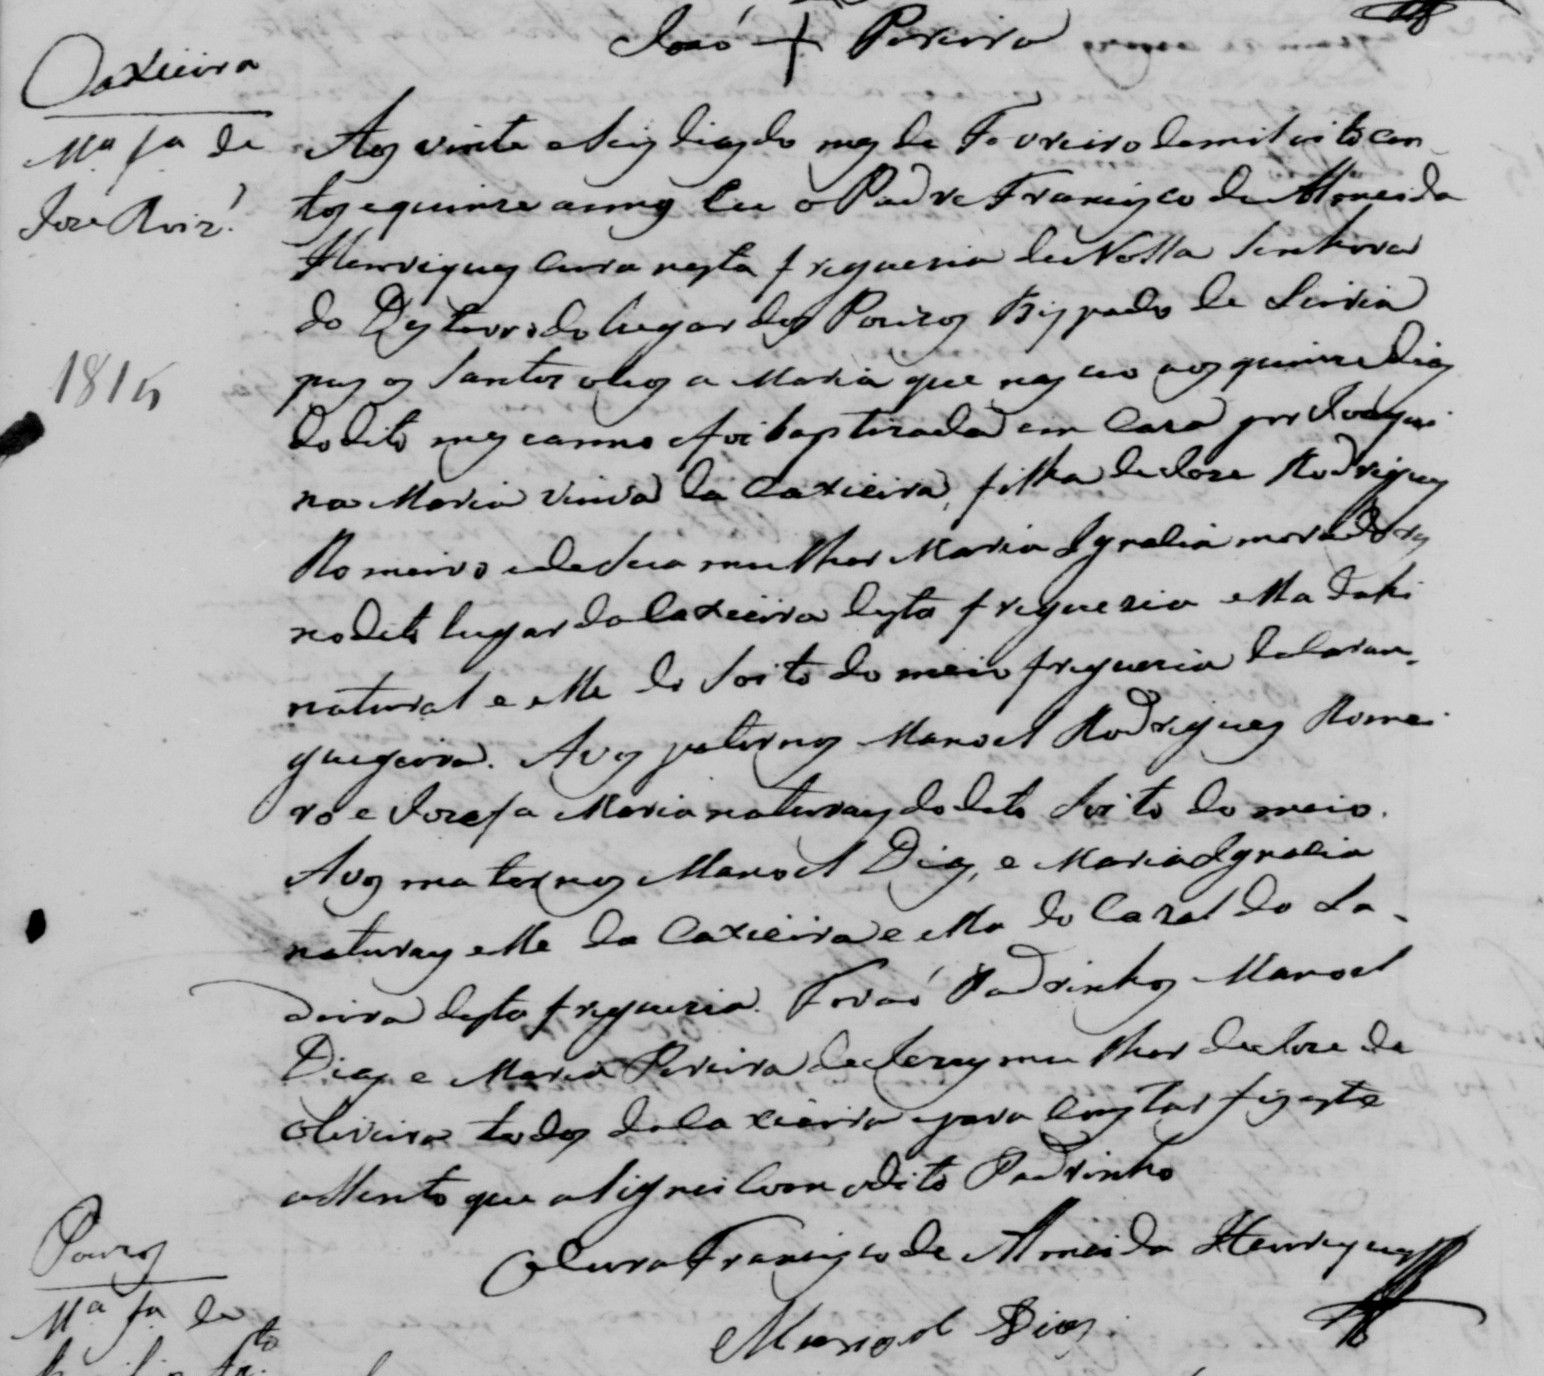 Joaõ + Pereira
Caxieira
Mª fª de
Joze Roiz'
1815
Aos vinte e seis dias do mes de Fevreiro de mil oito cen
tos e quinze annos eu o Padre Francisco de Almeida
Henriques Cura nesta freguezia de Nossa Senhora
do Desterro do lugar dos Pouzos Bispado de Leiria
pus os Santos oleos a Maria que nasceo aos quinze dias
do dito mes e anno e foi baptizada em Caza por Joaqui
na Maria viuva da Caxieira, filha de Joze Rodrigues
Romeiro e de sua mulher Maria Ignacia moradores
no dito lugar da Caxieira desta freguezia ella dahi
natural e elle do Soito do meio freguezia da Caran-
guegeira. Avos paternos Manoel Rodrigues Romei
ro e Jozefa Maria naturaes do dito Soito do meio.
Avos maternos Manoel Dias, e Maria Ignacia
naturaes elle da Caxieira e ella do Cazal do La-
deira desta freguezia. Foraõ Padrinhos Manoel
Dias e Maria Pereira de Jezus mulher de Joze de
Oliveira todos da Caxieira e para constar fis este
assento que assignei com o dito Padrinho
O Cura Francisco de Almeida Henriques
Manoel Dias
Pouzos
Mª fª de